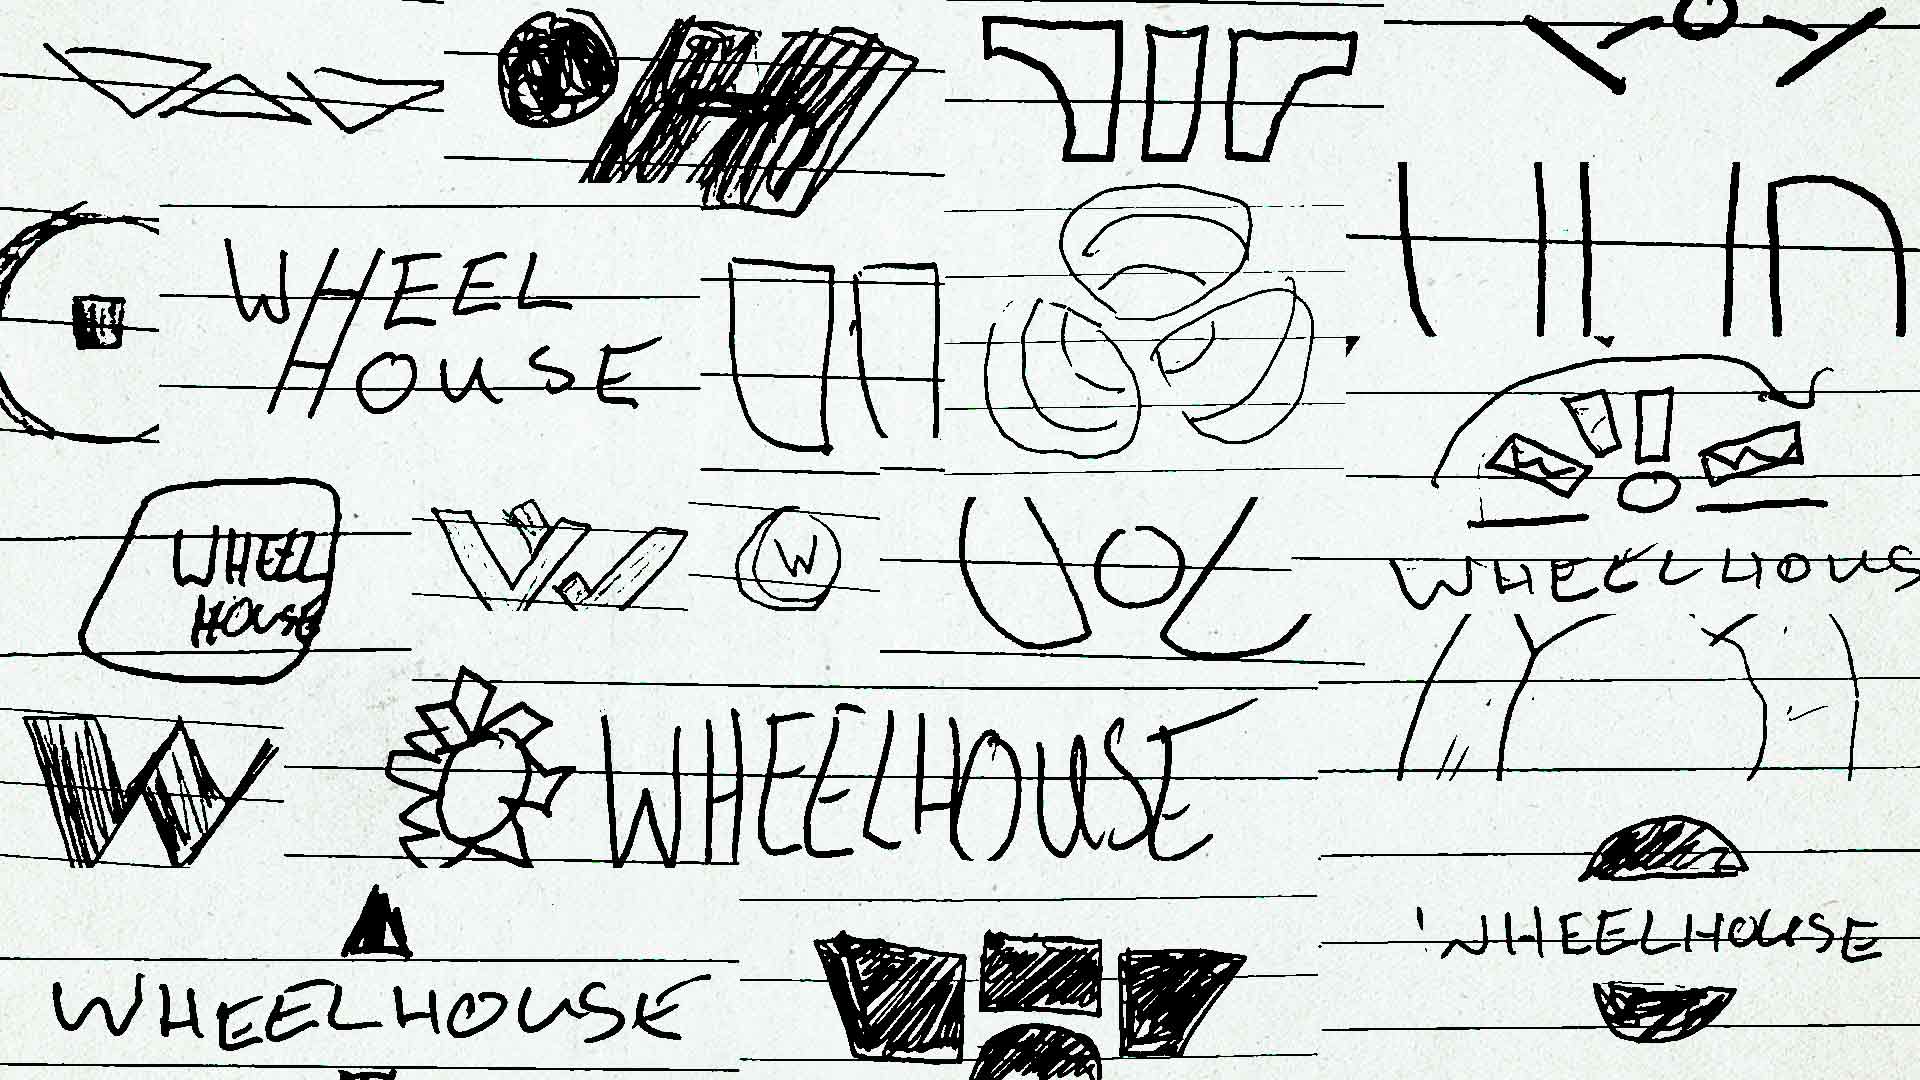 WHEEL
HOUSE
WHEEL
HOUSE
W
WHEELHOUS
W
WHEELHOUSE
WHEELHOUSE
WHEELHOUSE